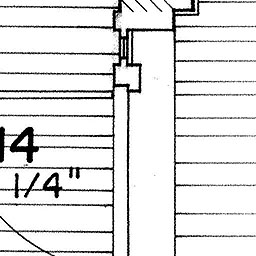 14
1/4"